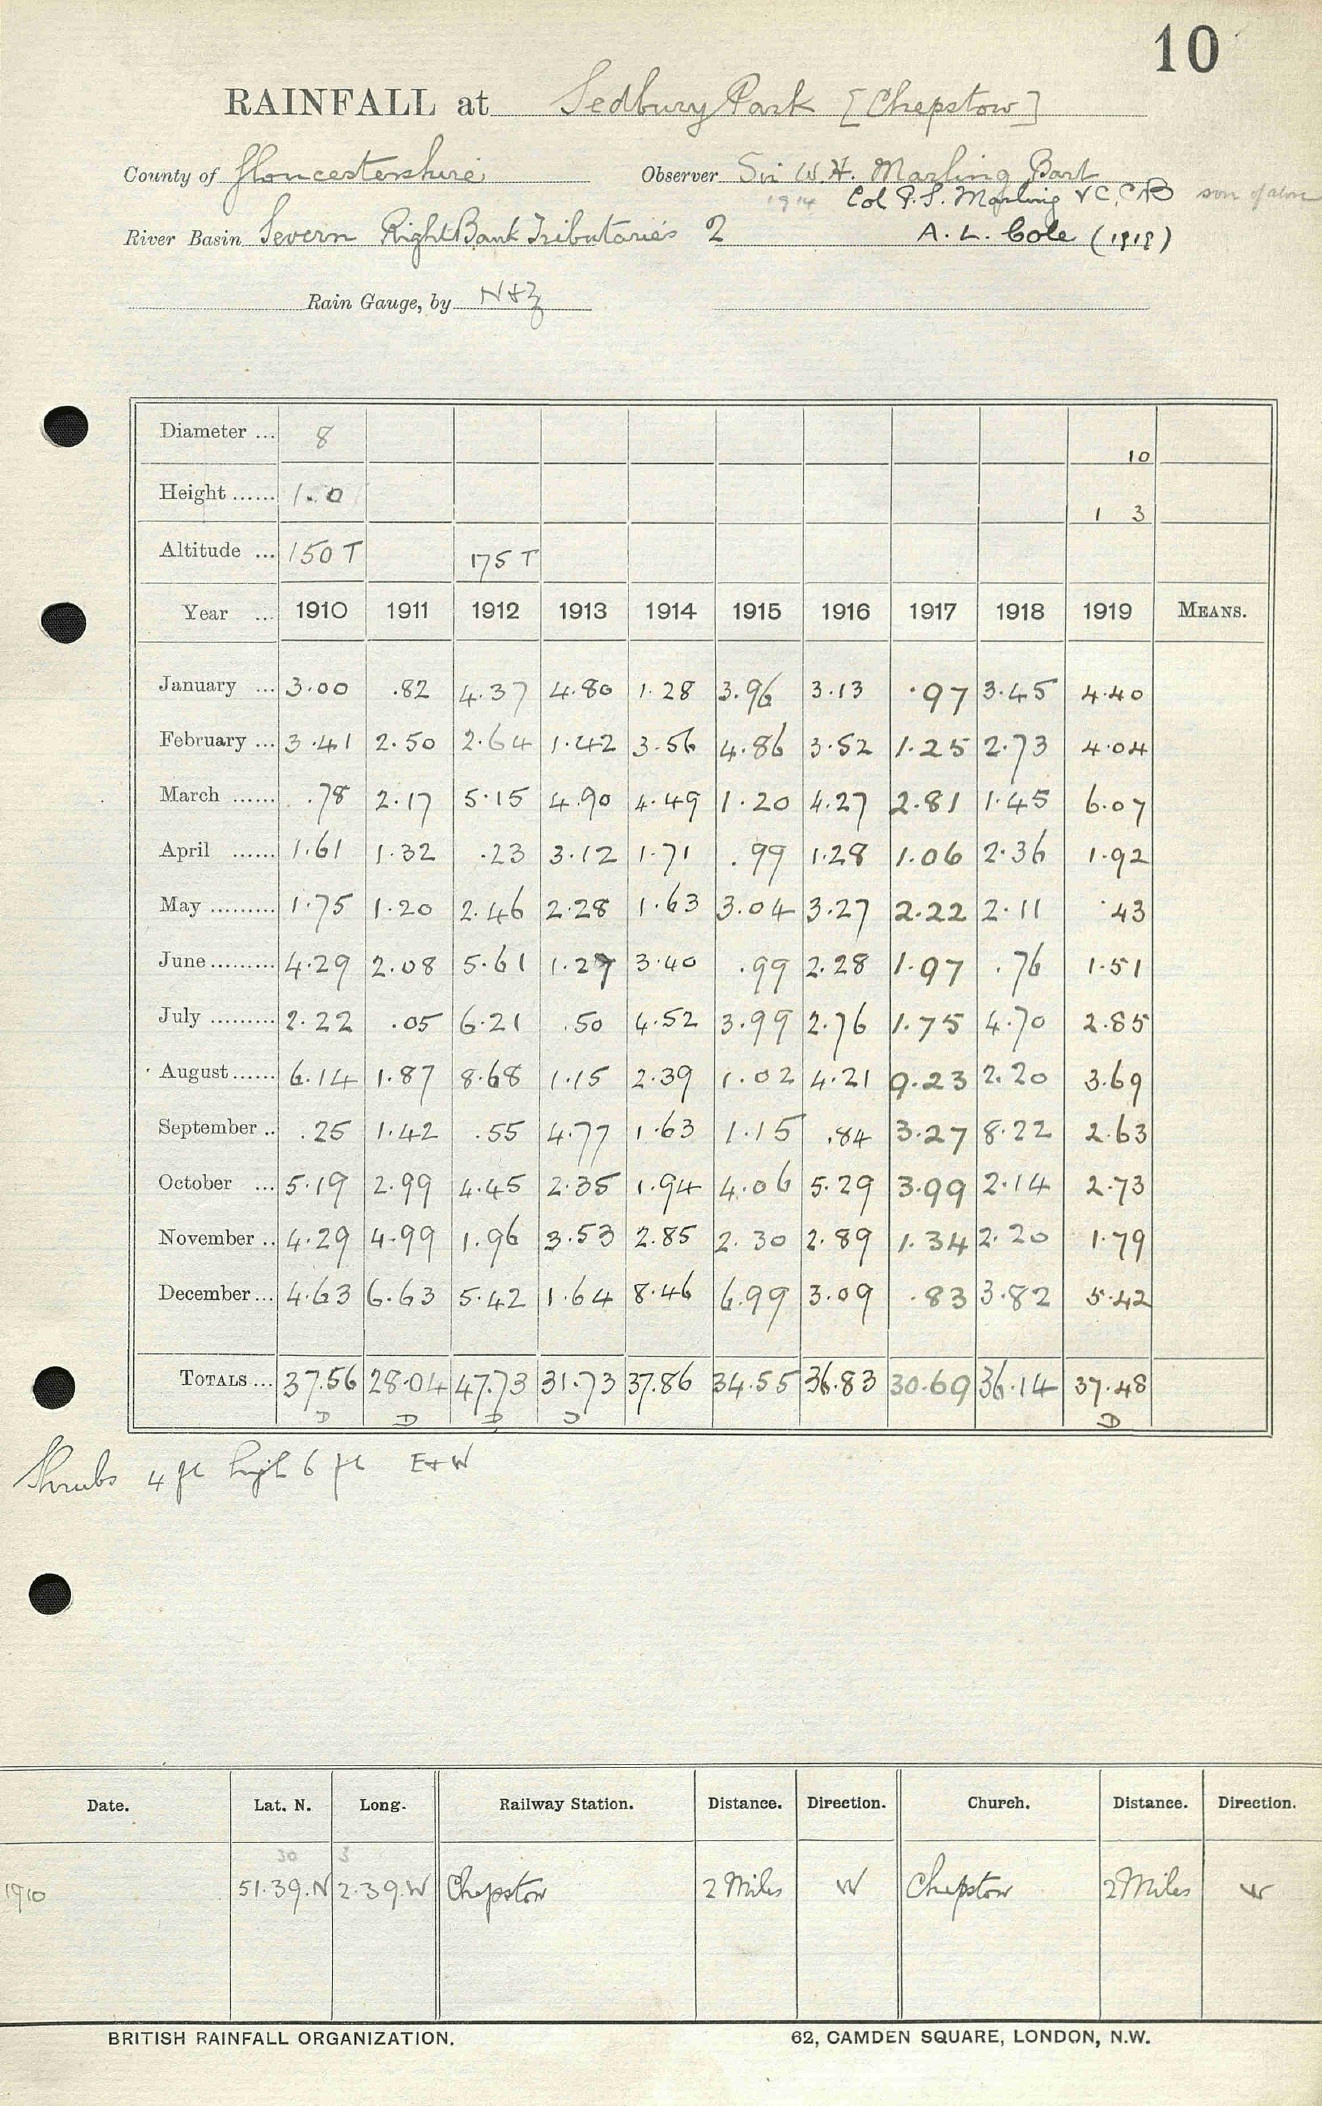 10
RAINFALL at Sedbury Park [Chepstow]
County of Gloucestershire Observer Sir W.H. Marling Bart
1914 Col P.S. Marling VC, CB son of above
River Basin Severn Right Bank Tributaries 2 A. L. Cole (1919)
Rain Gauge, by N+Z
Diameter ... 8 10
Height ...... 1.0 1 3
Altitude ... 150 T 175 T
Year ... 1910 1911 1912 1913 1914 1915 1916 1917 1918 1919 MEANS.
January ... 3.00 .82 4.37 4.80 1.28 3.96 3.13 .97 3.45 4.40
February ... 3.41 2.50 2.64 1.42 3.56 4.86 3.52 1.25 2.73 4.04
March ...... .78 2.17 5.15 4.90 4.49 1.20 4.27 2.81 1.45 6.07
April ...... 1.61 1.32 .23 3.12 1.71 .99 1.28 1.06 2.36 1.92
May ......... 1.75 1.20 2.46 2.28 1.63 3.04 3.27 2.22 2.11 .43
June ......... 4.29 2.08 5.61 1.27 3.40 .99 2.28 1.97 .76 1.51
July ......... 2.22 .05 6.21 .50 4.52 3.99 2.76 1.75 4.70 2.85
August ...... 6.14 1.87 8.68 1.15 2.39 1.02 4.21 9.23 2.20 3.69
September .. .25 1.42 .55 4.77 1.63 1.15 .84 3.27 8.22 2.63
October ... 5.19 2.99 4.45 2.35 1.94 4.06 5.29 3.99 2.14 2.73
November .. 4.29 4.99 1.96 3.53 2.85 2.30 2.89 1.34 2.20 1.79
December ... 4.63 6.63 5.42 1.64 8.46 6.99 3.09 .83 3.82 5.42
TOTALS ... 37.56 28.04 47.73 31.73 37.86 34.55 36.83 30.69 36.14 37.48
D D D D D
Shrubs 4 ft high 6 ft E+W
Date. Lat. N. Long. Railway Station. Distance. Direction. Church. Distance. Direction.
30 3
1910 51.39.N 2.39.W Chepstow 2 Miles W Chepstow 2 Miles W
BRITISH RAINFALL ORGANIZATION. 62, CAMDEN SQUARE, LONDON, N.W.